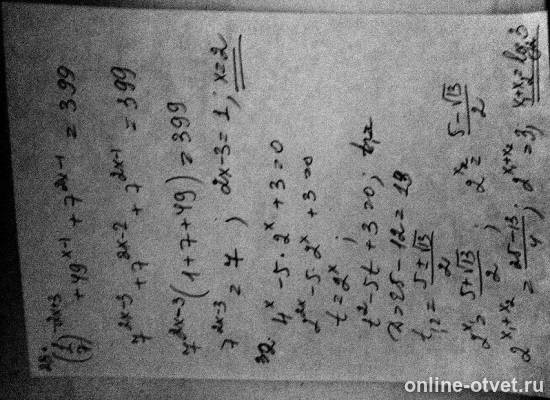 (1/7)^{-2x+3} + 49^{x-1} + 7^{2x-1} = 399
7^{2x-3} + 7^{2x-2} + 7^{2x-1} = 399
7^{2x-3}(1+7+49) = 399
7^{2x-3} = 7 ; 2x-3=1; x=2
4^x - 5·2^x + 3 = 0
2^{2x} - 5·2^x + 3 = 0
t = 2^x ;
t^2 - 5t + 3 = 0; t_{1,2}
D = 25 - 12 = 13
t_{1,2} = (5±√13)/2
2^{x_1} = (5+√13)/2 ; 2^{x_2} = (5-√13)/2
2^{x_1+x_2} = (25-13)/4 ; 2^{x_1+x_2} = 3; x_1+x_2 = log_2 3
online-otvet.ru